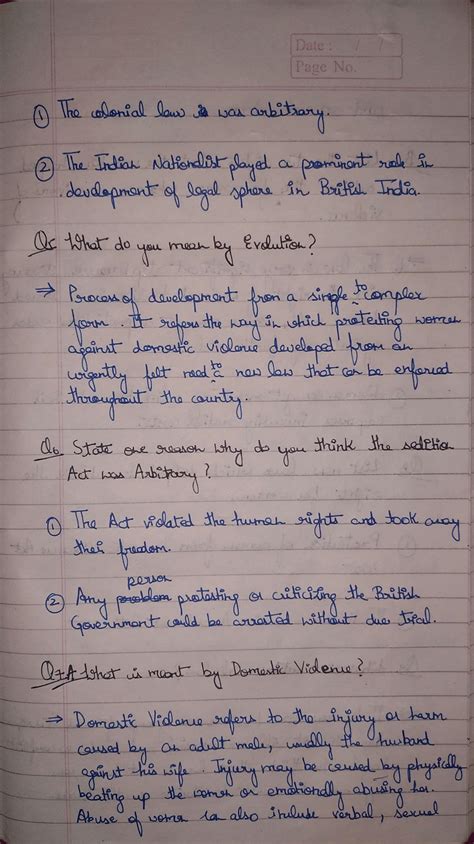 Date : / /
Page No.
① The colonial law is was arbitrary.
② The Indian Nationalist played a prominent role in
development of legal sphere in British India.
Q5 What do you mean by Evolution?
⇒ Process of development from a simple to complex
form. It refers the way in which protecting women
against domestic violence developed from an
urgently felt need to a new law that can be enforced
throughout the country.
Q6 State one reason why do you think the sedition
Act was Arbitrary?
① The Act violated the human rights and took away
their freedom.
② Any problem person protesting or criticizing the British
Government could be arrested without due trial.
Q7A What is meant by Domestic Violence?
⇒ Domestic Violence refers to the injury or harm
caused by an adult male, usually the husband
against his wife. Injury may be caused by physically
beating up the women or emotionally abusing her.
Abuse of women can also include verbal, sexual